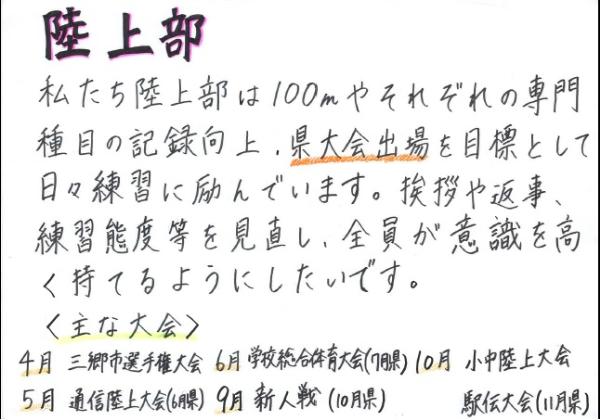 陸上部
私たち陸上部は100mやそれぞれの専門
種目の記録向上、県大会出場を目標として
日々練習に励んでいます。挨拶や返事、
練習態度等を見直し、全員が意識を高
く持てるようにしたいです。
<主な大会>
4月 三郷市選手権大会 6月 学校総合体育大会(7月県) 10月 小中陸上大会
5月 通信陸上大会(6月県) 9月 新人戦(10月県) 駅伝大会(11月県)